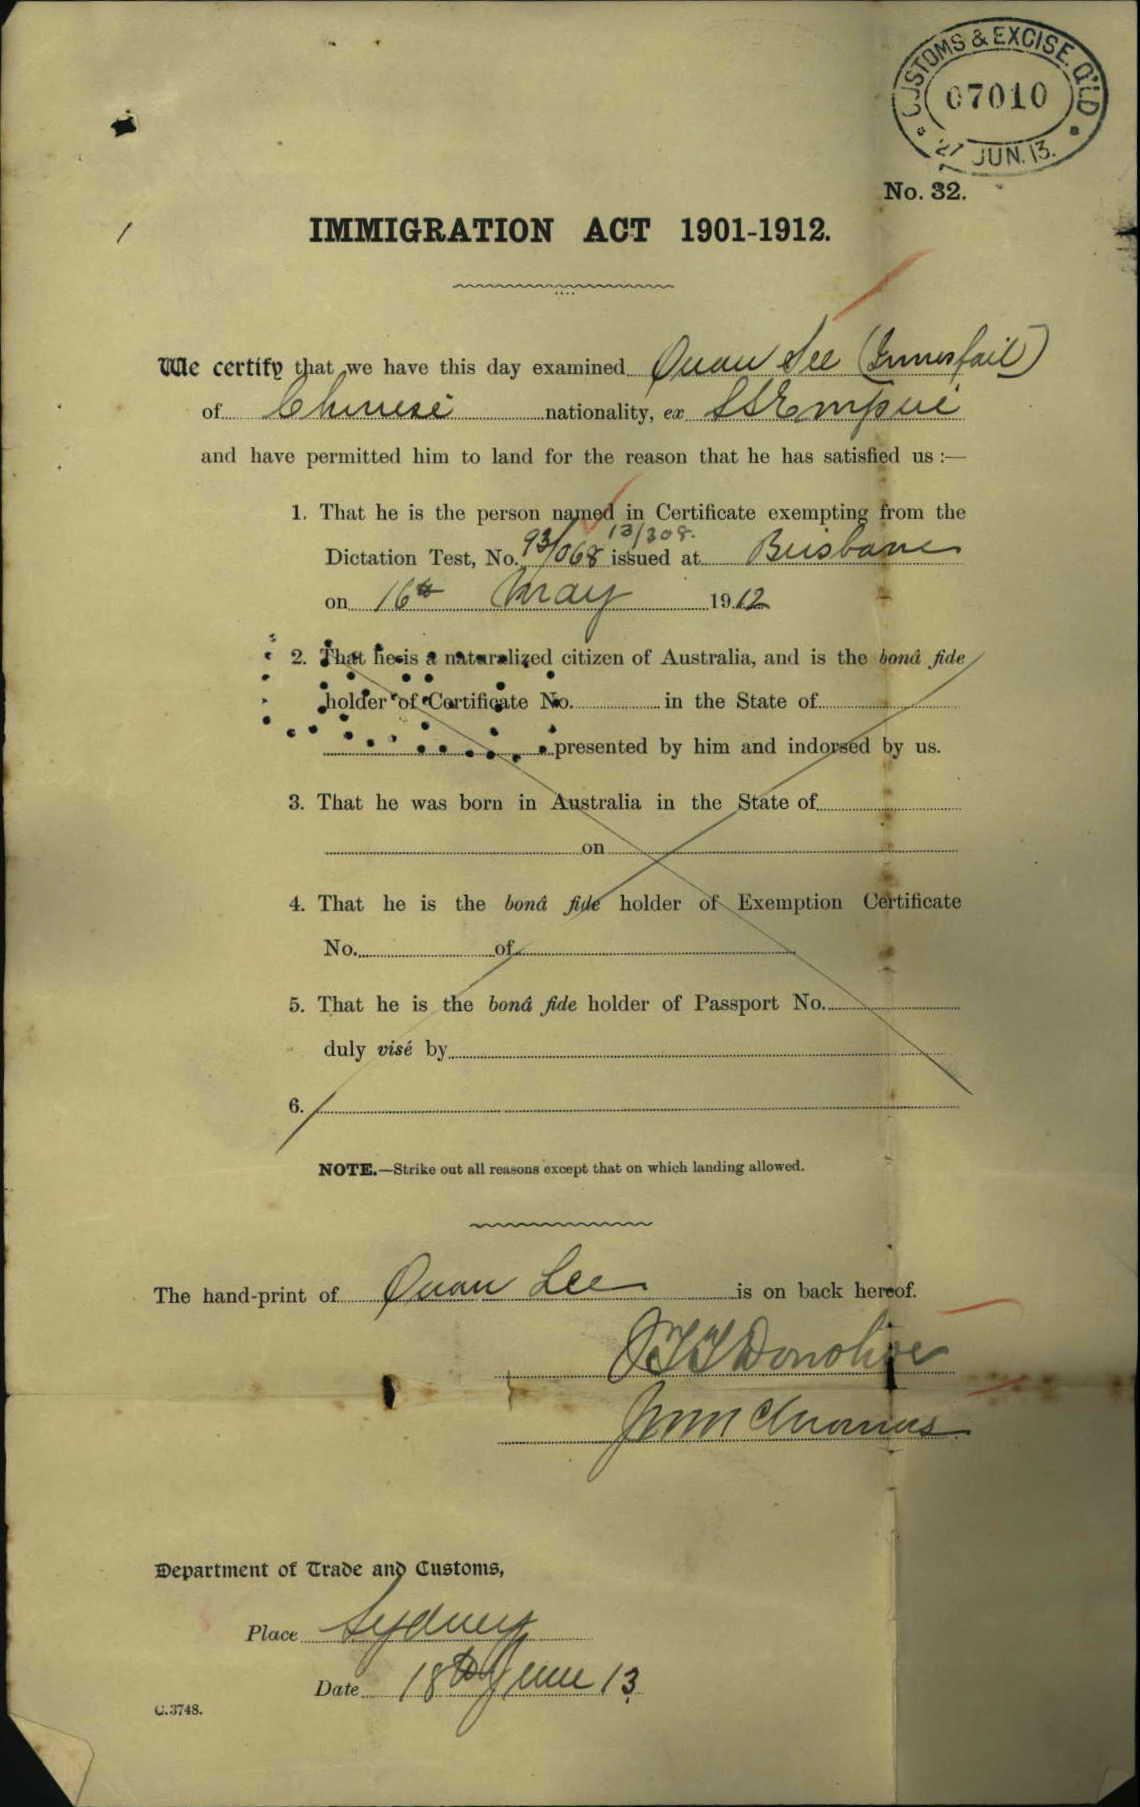 CUSTOMS & EXCISE. Q'LD
07010
21 JUN. 13.
No. 32.
IMMIGRATION ACT 1901-1912.
We certify that we have this day examined Quan Lee (Innisfail)
of Chinese nationality, ex SS Empire
and have permitted him to land for the reason that he has satisfied us :—
1. That he is the person named in Certificate exempting from the
13/308.
Dictation Test, No. 93/068 issued at Brisbane
on 16th May 1912
2. That he is a naturalized citizen of Australia, and is the bonâ fide
holder of Certificate No. in the State of
presented by him and indorsed by us.
3. That he was born in Australia in the State of
on
4. That he is the bonâ fide holder of Exemption Certificate
No. of
5. That he is the bonâ fide holder of Passport No.
duly visé by
6.
NOTE.—Strike out all reasons except that on which landing allowed.
The hand-print of Quan Lee is on back hereof.
Donohoe
Department of Trade and Customs,
Place Sydney
Date 18th June 13
C.3748.